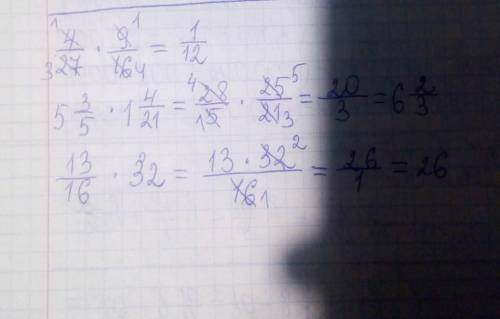 ¹4/₃27 · 9¹/16₄ = 1/12
5 3/5 · 1 4/21 = ⁴28/₁5 · 25⁵/21₃ = 20/3 = 6 2/3
13/16 · 32 = 13 · 32²/16₁ = 26/1 = 26